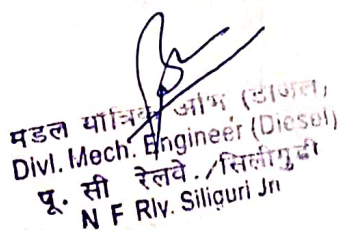 मंडल यांत्रिक (डीजल)
Divl. Mech. Engineer (Diesel)
पू. सी रेलवे./सिलीगुड़ी
N F Rly. Siliguri Jn